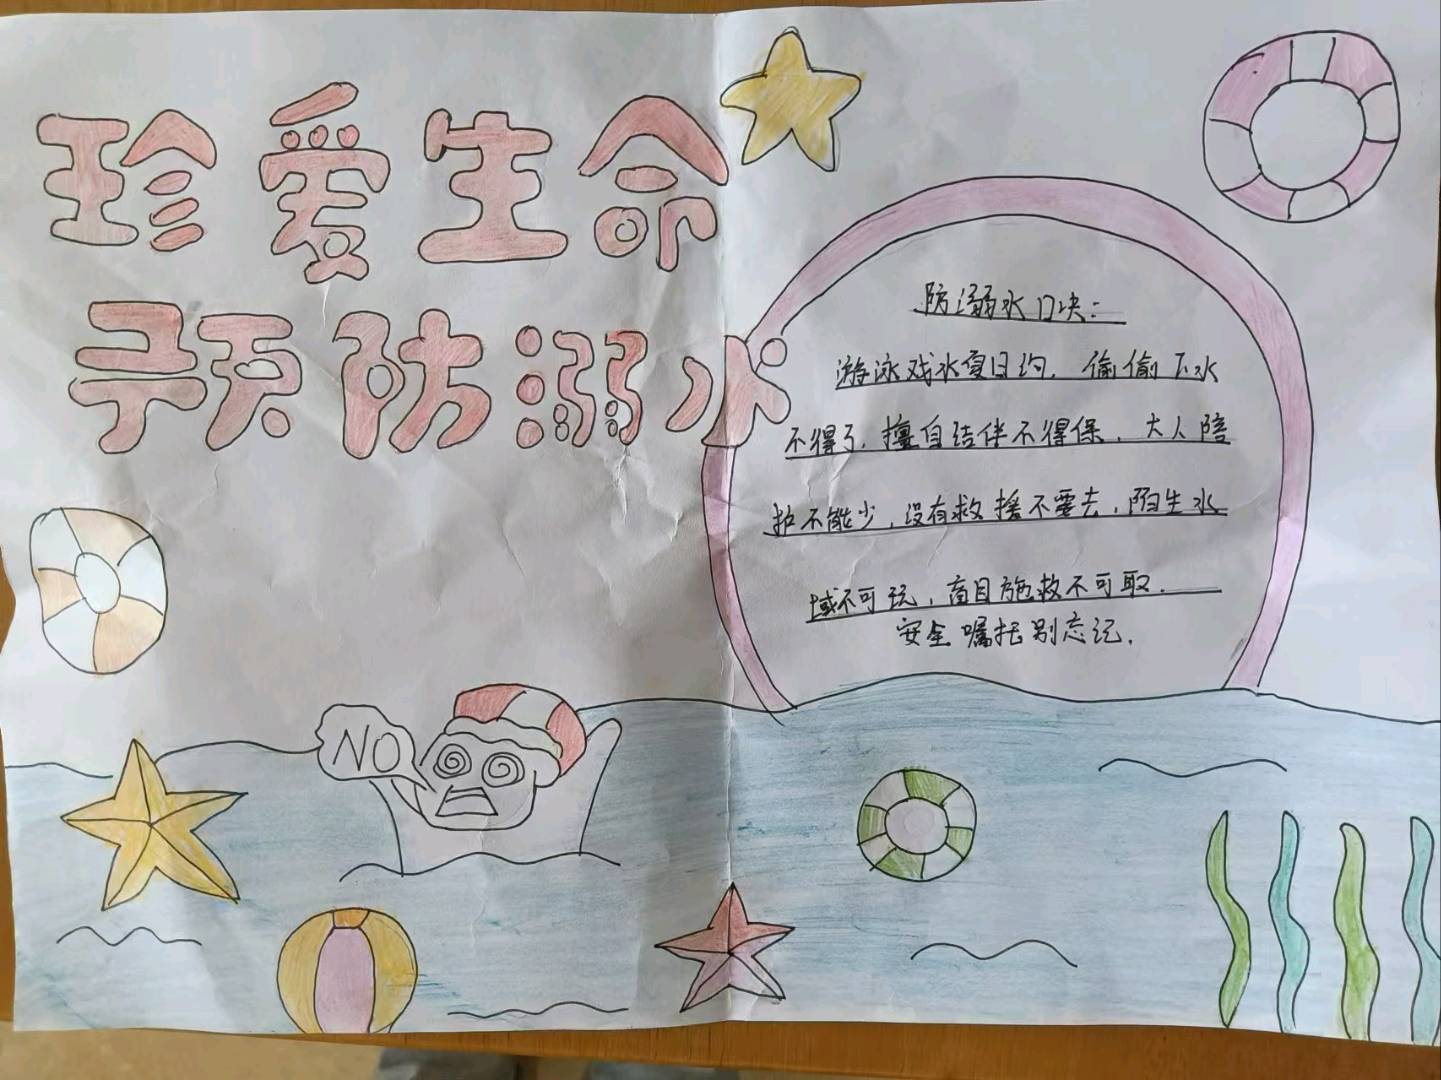 珍爱生命
预防溺水
防溺水口决:
游泳戏水夏日约，偷偷下水
不得了，擅自结伴不得保，大人陪
护不能少，没有救援不要去，陌生水
域不可玩，盲目施救不可取.
安全嘱托别忘记.
NO